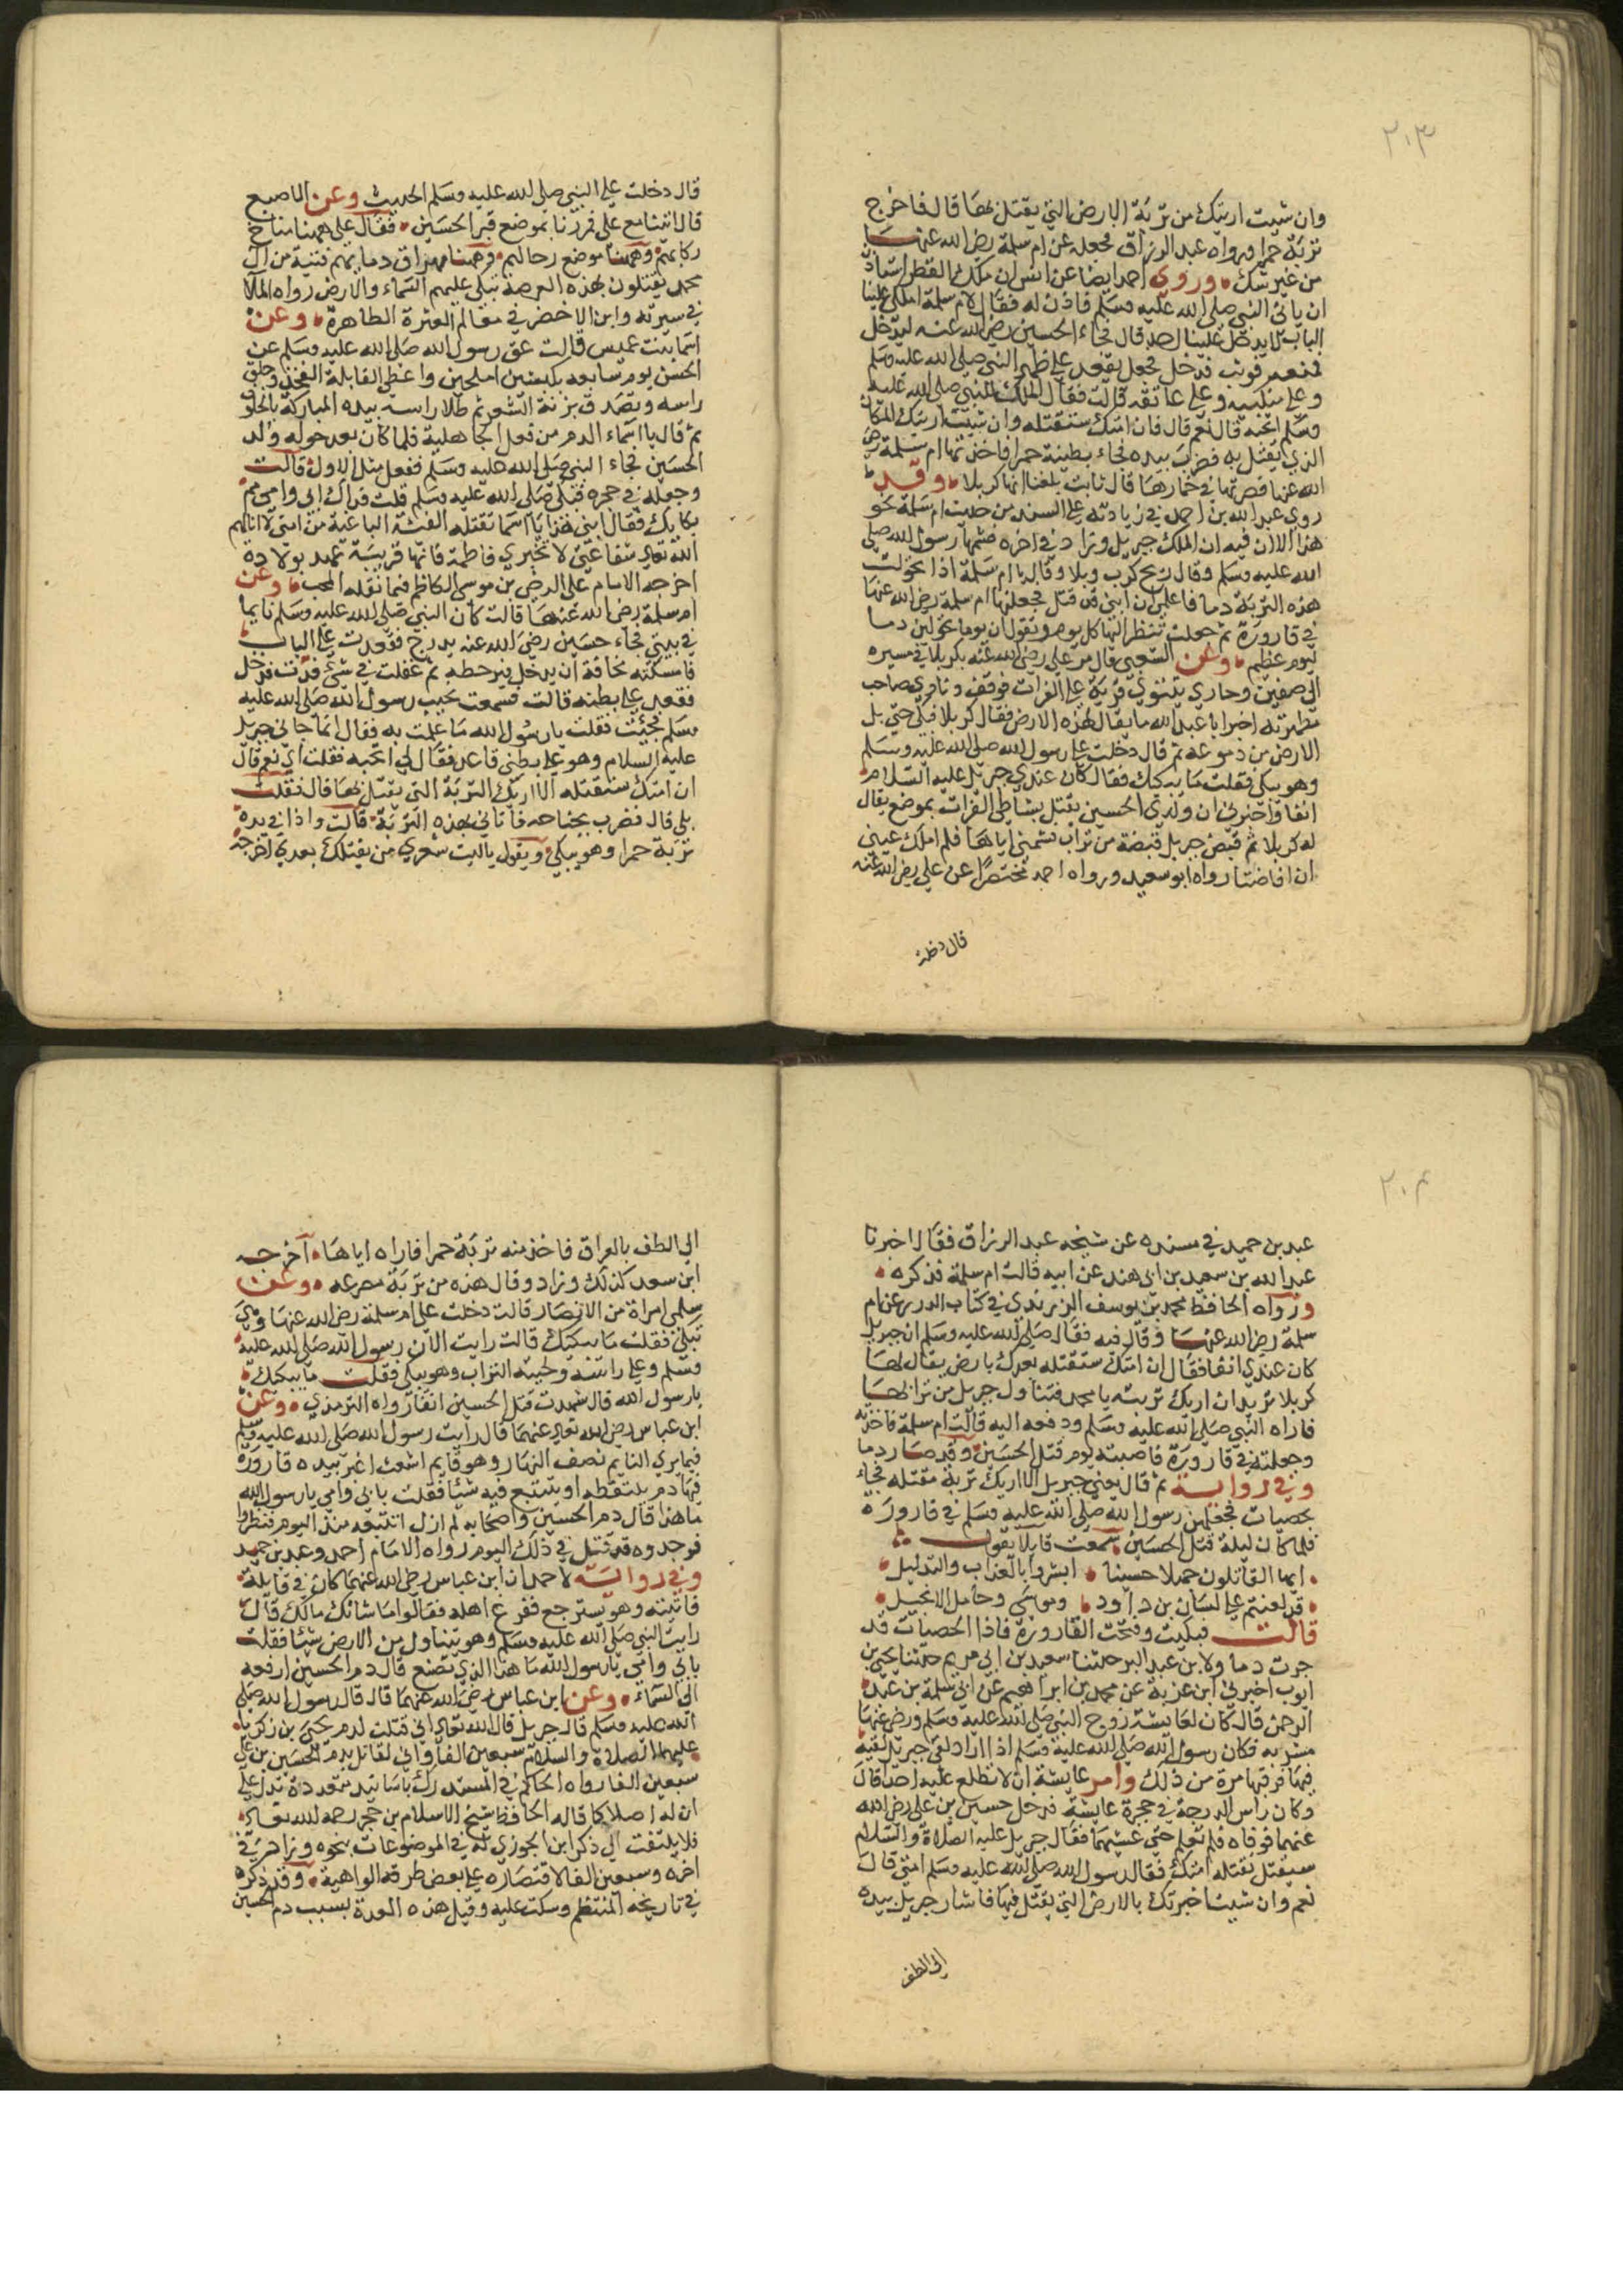 ٢٠٣
وان شيت اريتك من تربة الارض التي يقتل بها قال فاخرج
تربة حمرا ورواه عبد الرزاق فجعله عن ام سلمة رضي الله عنها
من غير شك وروي احمد ايضا عن انس ان ملك القطر استأذن
ان ياتي النبي صلى الله عليه وسلم فاذن له فقال لام سلمة املكي علينا
الباب لا يدخل علينا احد قال فجاء الحسين رضي الله عنه ليدخل
فمنعته فوثب فدخل فجعل يقعد على ظهر النبي صلى الله عليه وسلم
وعلى منكبيه وعلى عاتقه قالت فقال الملك للنبي صلى الله عليه
وسلم اتحبه قال نعم قال فان امتك ستقتله وان شيت اريتك المكان
الذي يقتل به فضرب بيده فجاء بطينة حمرا فاخذتها ام سلمة رضي
الله عنها فصرتها في خمارها قال ثابت بلغنا انها كربلا وقد
روي عبد الله بن احمد في زيادته على المسند من حديث ام سلمة نحو
هذا الا ان فيه ان الملك جبريل وزاد في اخره فشمها رسول الله صلى
الله عليه وسلم وقال ريح كرب وبلا وقال يا ام سلمة اذا تحولت
هذه التربة دما فاعلمي ان ابني قد قتل فجعلتها ام سلمة رضي الله عنها
في قارورة ثم جعلت تنظر اليها كل يوم وتقول ان يوما تحولين دما
ليوم عظيم وعن الشعبي قال مر علي رضي الله عنه بكربلا في مسيره
الى صفين وحاذي نينوي قرية على الفرات فوقف ونادي صاحب
مطهرته اخبر ابا عبد الله ما يقال لهذه الارض فقال كربلا فبكي حتى بل
الارض من دموعه ثم قال دخلت على رسول الله صلى الله عليه وسلم
وهو يبكي فقلت ما يبكيك فقال كان عندي جبريل عليه السلام
انفا واخبرني ان ولدي الحسين يقتل بشاطي الفرات بموضع يقال
له كربلا ثم قبض جبريل قبضة من تراب شمني اياها فلم املك عيني
ان افاضتا رواه ابو سعيد ورواه احمد مختصرا عن علي رضي الله عنه
قال دخلت
قال دخلت على النبي صلى الله عليه وسلم الحديث وعن الاصبع
قال اتينا مع علي فمررنا بموضع قبر الحسين فقال علي ههنا مناخ
ركابهم وههنا موضع رحالهم وههنا مهراق دمايهم فتية من ال
محمد يقتلون بهذه العرصة تبكي عليهم السماء والارض رواه الملا
في سيرته وابن الاخضر في معالم العترة الطاهرة وعن
اسما بنت عميس قالت عق رسول الله صلى الله عليه وسلم عن
الحسن يوم سابعه بكبشين املحين واعطى القابلة الفخذ وحلق
راسه وتصدق بزنة الشعر ثم طلا راسه بيده المباركة بالخلوق
ثم قال يا اسماء الدم من فعل الجاهلية فلما كان بعد حوله ولد
الحسين فجاء النبي صلى الله عليه وسلم ففعل مثل الاول قالت
وجعله في حجره فبكى صلى الله عليه وسلم قلت فداك ابي وامي مم
بكايك فقال ابني هذا يا اسما تقتله الفئة الباغية من امتي لا انالهم
الله تعالى شفاعتي لا تخبري فاطمة فانها قريبة عهد بولادة
اخرجه الامام علي الرضي بن موسى الكاظم فيما نقله المحب وعن
ام سلمة رضي الله عنها قالت كان النبي صلى الله عليه وسلم نايما
في بيتي فجاء حسين رضي الله عنه يدرج فقعدت على الباب
فامسكته مخافة ان يدخل فيوقظه ثم غفلت في شئ فدب فدخل
فقعد على بطنه قالت فسمعت نحيب رسول الله صلى الله عليه
وسلم فجئت فقلت يا رسول الله ما علمت به فقال انما جاني جبريل
عليه السلام وهو على بطني قاعد فقال لي اتحبه فقلت اي نعم قال
ان امتك ستقتله الا اريك التربة التي يقتل بها قال فقلت
بلى قال فضرب بجناحه فاتاني بهذه التربة قالت واذا في يده
تربة حمرا وهو يبكي ويقول ياليت شعري من يقتلك بعدي اخرجه
٢٠٤
عبد بن حميد في مسنده عن شيخه عبد الرزاق فقال اخبرنا
عبد الله بن سعيد بن ابي هند عن ابيه قالت ام سلمة فذكره
ورواه الحافظ محمد بن يوسف الزرندي في كتاب الدرر عن ام
سلمة رضي الله عنها وقال فيه فقال صلى الله عليه وسلم ان جبريل
كان عندي انفا فقال ان امتك ستقتله بعدك بارض يقال لها
كربلا تريد ان اريك تربته يا محمد فتناول جبريل من ترابها
فاراه النبي صلى الله عليه وسلم ودفعه اليه قالت ام سلمة فاخذته
وجعلته في قارورة فاصبته يوم قتل الحسين وقد صار دما
وفي رواية ثم قال يعني جبريل الا اريك تربة مقتله فجاء
بحصيات فجعلهن رسول الله صلى الله عليه وسلم في قارورة
فلما كان ليلة قتل الحسين سمعت قايلا يقول
ايها القاتلون جهلا حسينا ابشروا بالعذاب والتذليل
قد لعنتم على لسان بن داود وموسى وحامل الانجيل
قالت فبكيت وفتحت القارورة فاذا الحصيات قد
جرت دما ولابن عبد البر حدثنا سعيد بن ابي مريم حدثنا يحيى بن
ايوب اخبرني ابن غزية عن محمد بن ابراهيم عن ابي سلمة بن عبد
الرحمن قال كان لعايشة زوج النبي صلى الله عليه وسلم ورضي عنها
مشربه فكان رسول الله صلى الله عليه وسلم اذا اراد لقي جبريل لقيه
فيها فرقيها مرة من ذلك وامر عايشة ان لا تطلع عليه احد قال
وكان راس الدرجة في حجرة عايشة فدخل حسين بن علي رضي الله
عنهما فرقاه فلم تعلم حتى غشيهما فقال جبريل عليه الصلاة والسلام
سيقتل تقتله امتك فقال رسول الله صلى الله عليه وسلم امتي قال
نعم وان شيت اخبرتك بالارض التي يقتل فيها فاشار جبريل بيده
الى الطف
الى الطف بالعراق فاخذ منه تربة حمرا فاراه اياها اخرجه
ابن سعد كذلك وزاد وقال هذه من تربة مصرعه وعن
سلمى امراة من الانصار قالت دخلت على ام سلمة رضي الله عنها وهي
تبكي فقلت ما يبكيك قالت رايت الان رسول الله صلى الله عليه
وسلم وعلى راسه ولحيته التراب وهو يبكي فقلت ما يبكيك
يا رسول الله قال شهدت قتل الحسين انفا رواه الترمذي وعن
ابن عباس رضي الله تعالى عنهما قال رايت رسول الله صلى الله عليه وسلم
فيما يري النايم نصف النهار وهو قايم اشعث اغبر بيده قارورة
فيها دم يلتقطه او يتتبع فيه شيئا فقلت بابي وامي يا رسول الله
ما هذا قال دم الحسين واصحابه لم ازل اتتبعه منذ اليوم فنظروا
فوجدوه قد قتل في ذلك اليوم رواه الامام احمد وعبد بن حميد
وفي رواية لاحمد ان ابن عباس رضي الله عنهما كان في قايلة
فانتبه وهو يسترجع ففزع اهله فقالوا ما شانك مالك قال
رايت النبي صلى الله عليه وسلم وهو يتناول من الارض شيئا فقلت
بابي وامي يا رسول الله ما هذا الذي تصنع قال دم الحسين ارفعه
الى السماء وعن ابن عباس رضي الله عنهما قال قال رسول الله صلى
الله عليه وسلم قال جبريل قال الله تعالى اني قتلت لدم يحيى بن زكريا
عليهما الصلاة والسلام سبعين الفا واني لقاتل بدم الحسين بن علي
سبعين الفا رواه الحاكم في المستدرك باسانيد متعددة تدل على
ان له اصلا كما قاله الحافظ شيخ الاسلام بن حجر رحمه الله تعالى
فلا يلتفت الى ذكر ابن الجوزي له في الموضوعات بنحوه وزاد في
اخره وسبعين الفا لاقتصاره على بعض طرقه الواهية وقد ذكره
في تاريخه المنتظم وسكت عليه وقيل هذه العدة بسبب دم الحسين